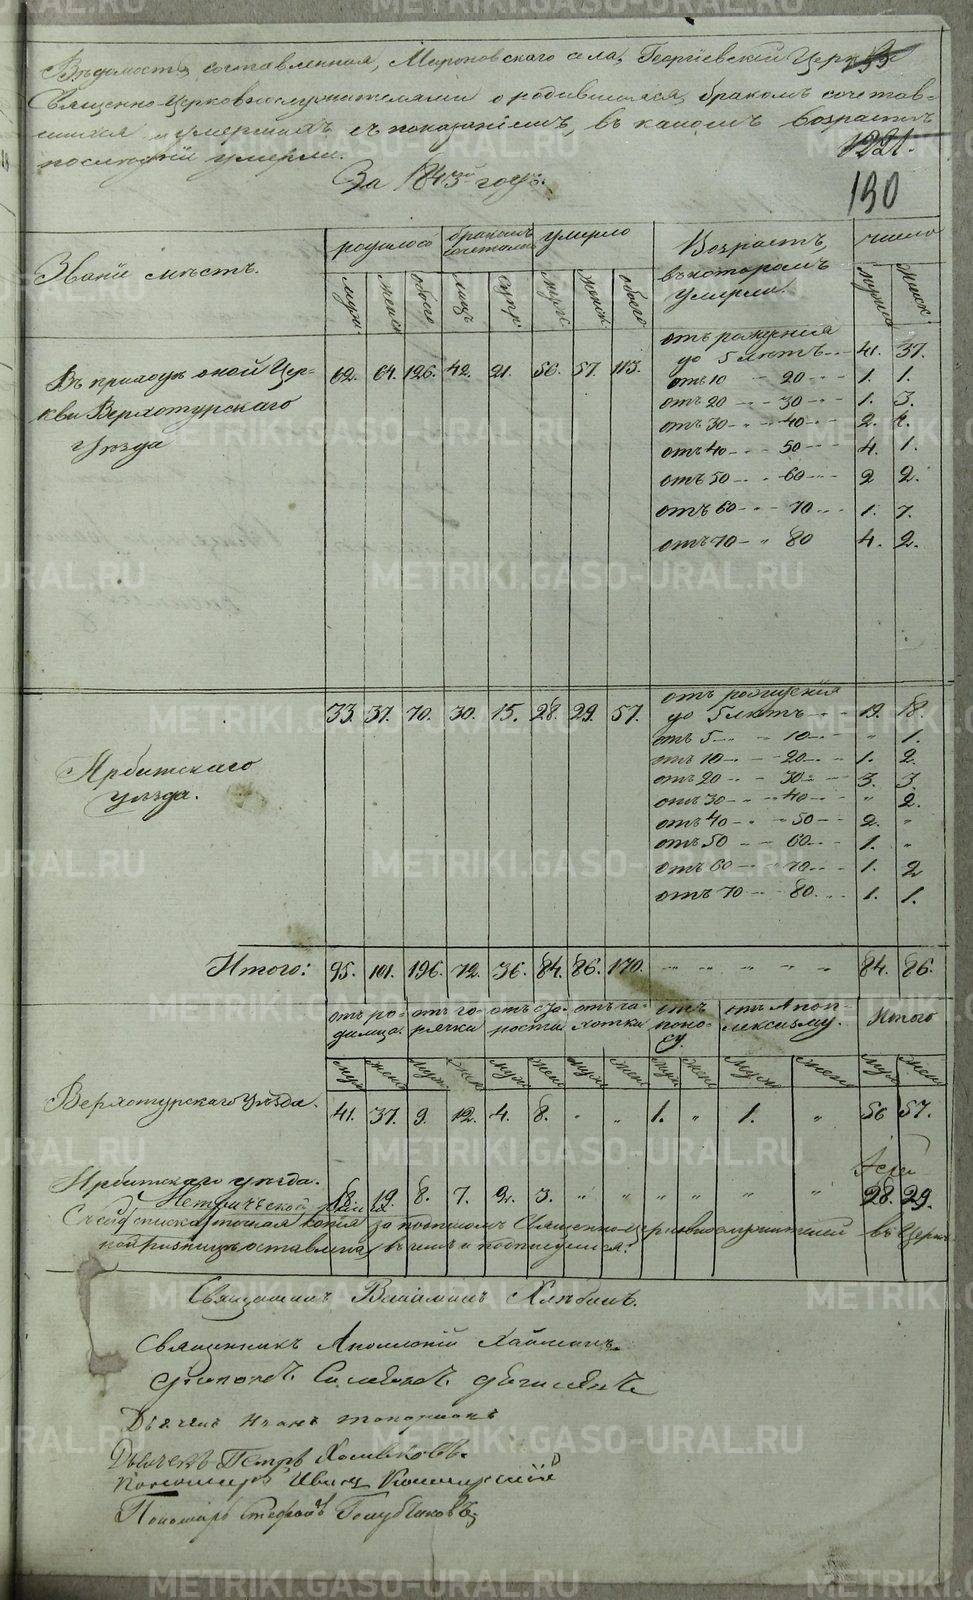 Вѣдомость составленная, Мироновскаго села, Георгіевской Церкви
Священно-церковнослужителями о родившихся, бракомъ сочетав-
шихся и умершихъ съ показаніемъ, въ какомъ возрастѣ
послѣдніи умерли.
1221.
За 1843й годъ.
190
Званіе мѣстъ. родилось бракомъ сочетались умерло Возрастъ, въ которомъ умерли. число
муж. женск. обоего лицъ супр. муж. женск. обоего мужеск. женск.
Въ приходѣ оной Цер-
кви Верхотурскаго
уѣзда
62. 64. 126. 42. 21. 56. 57. 113.
отъ рожденія
до 5 лѣтъ 41. 37.
отъ 10 - 20 1. 1.
отъ 20 - 30 1. 3.
отъ 30 - 40 2. 4.
отъ 40 - 50 4. 1.
отъ 50 - 60 2 2.
отъ 60 - 70 1. 7.
отъ 70 - 80 4. 2.
Ирбитскаго
уѣзда.
33. 37. 70. 30. 15. 28. 29. 57.
отъ рожденія
до 5 лѣтъ 19. 18.
отъ 5 - 10 " 1.
отъ 10 - 20 1. 2.
отъ 20 - 30 3. 3
отъ 30 - 40 " 2.
отъ 40 - 50 2. "
отъ 50 60 1. "
отъ 60 - 70 1. 2
отъ 70 - 80 1. 1.
Итого: 95. 101. 196. 72. 36. 84. 86. 170. " " " " " 84. 86.
отъ родимца. отъ горячки отъ старости отъ чахотки отъ поносу. отъ Апоплексизму. Итого
муж. жен. муж. жен. муж. жен. муж. жен. муж. жен. муж. жен. муж. жен.
Верхотурскаго уѣзда. 41. 37. 9. 12. 4. 8. " " 1. " 1. " 56 57.
Ирбитскаго уѣзда. 18. 19. 8. 7. 2. 3. " " " " " " 28. 29.
Съ сей точная копія за подписомъ Священноцерковнослужителей въ Церков-
ной ризницѣ оставлена, въ чемъ и подписуемся:
Священникъ Веніаминъ
Священникъ
Діаконъ
Дьячекъ Иванъ Топорковъ
Дьячекъ Петръ
Пономарь Иванъ
Пономарь Стефанъ Голубчиковъ
METRIKI.GASO-URAL.RU